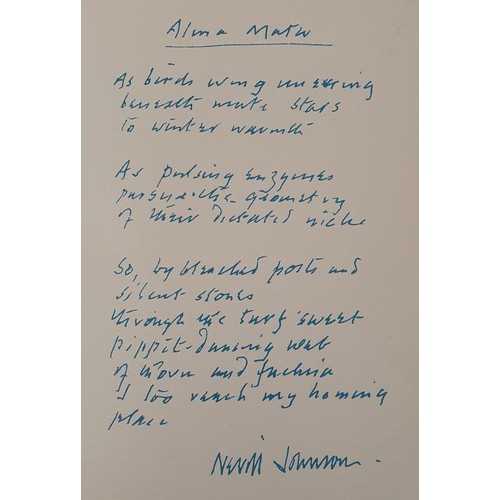 Alma Mater
As birds wing unerring
beneath mute stars
to winter warmth
As pulsing enzymes
pursue the geometry
of their dictated niche
So, by bleached posts and
silent stones
through the turf sweet
pippit-dancing web
of thorn and fuchsia
I too reach my homing
place
Nevill Johnson.